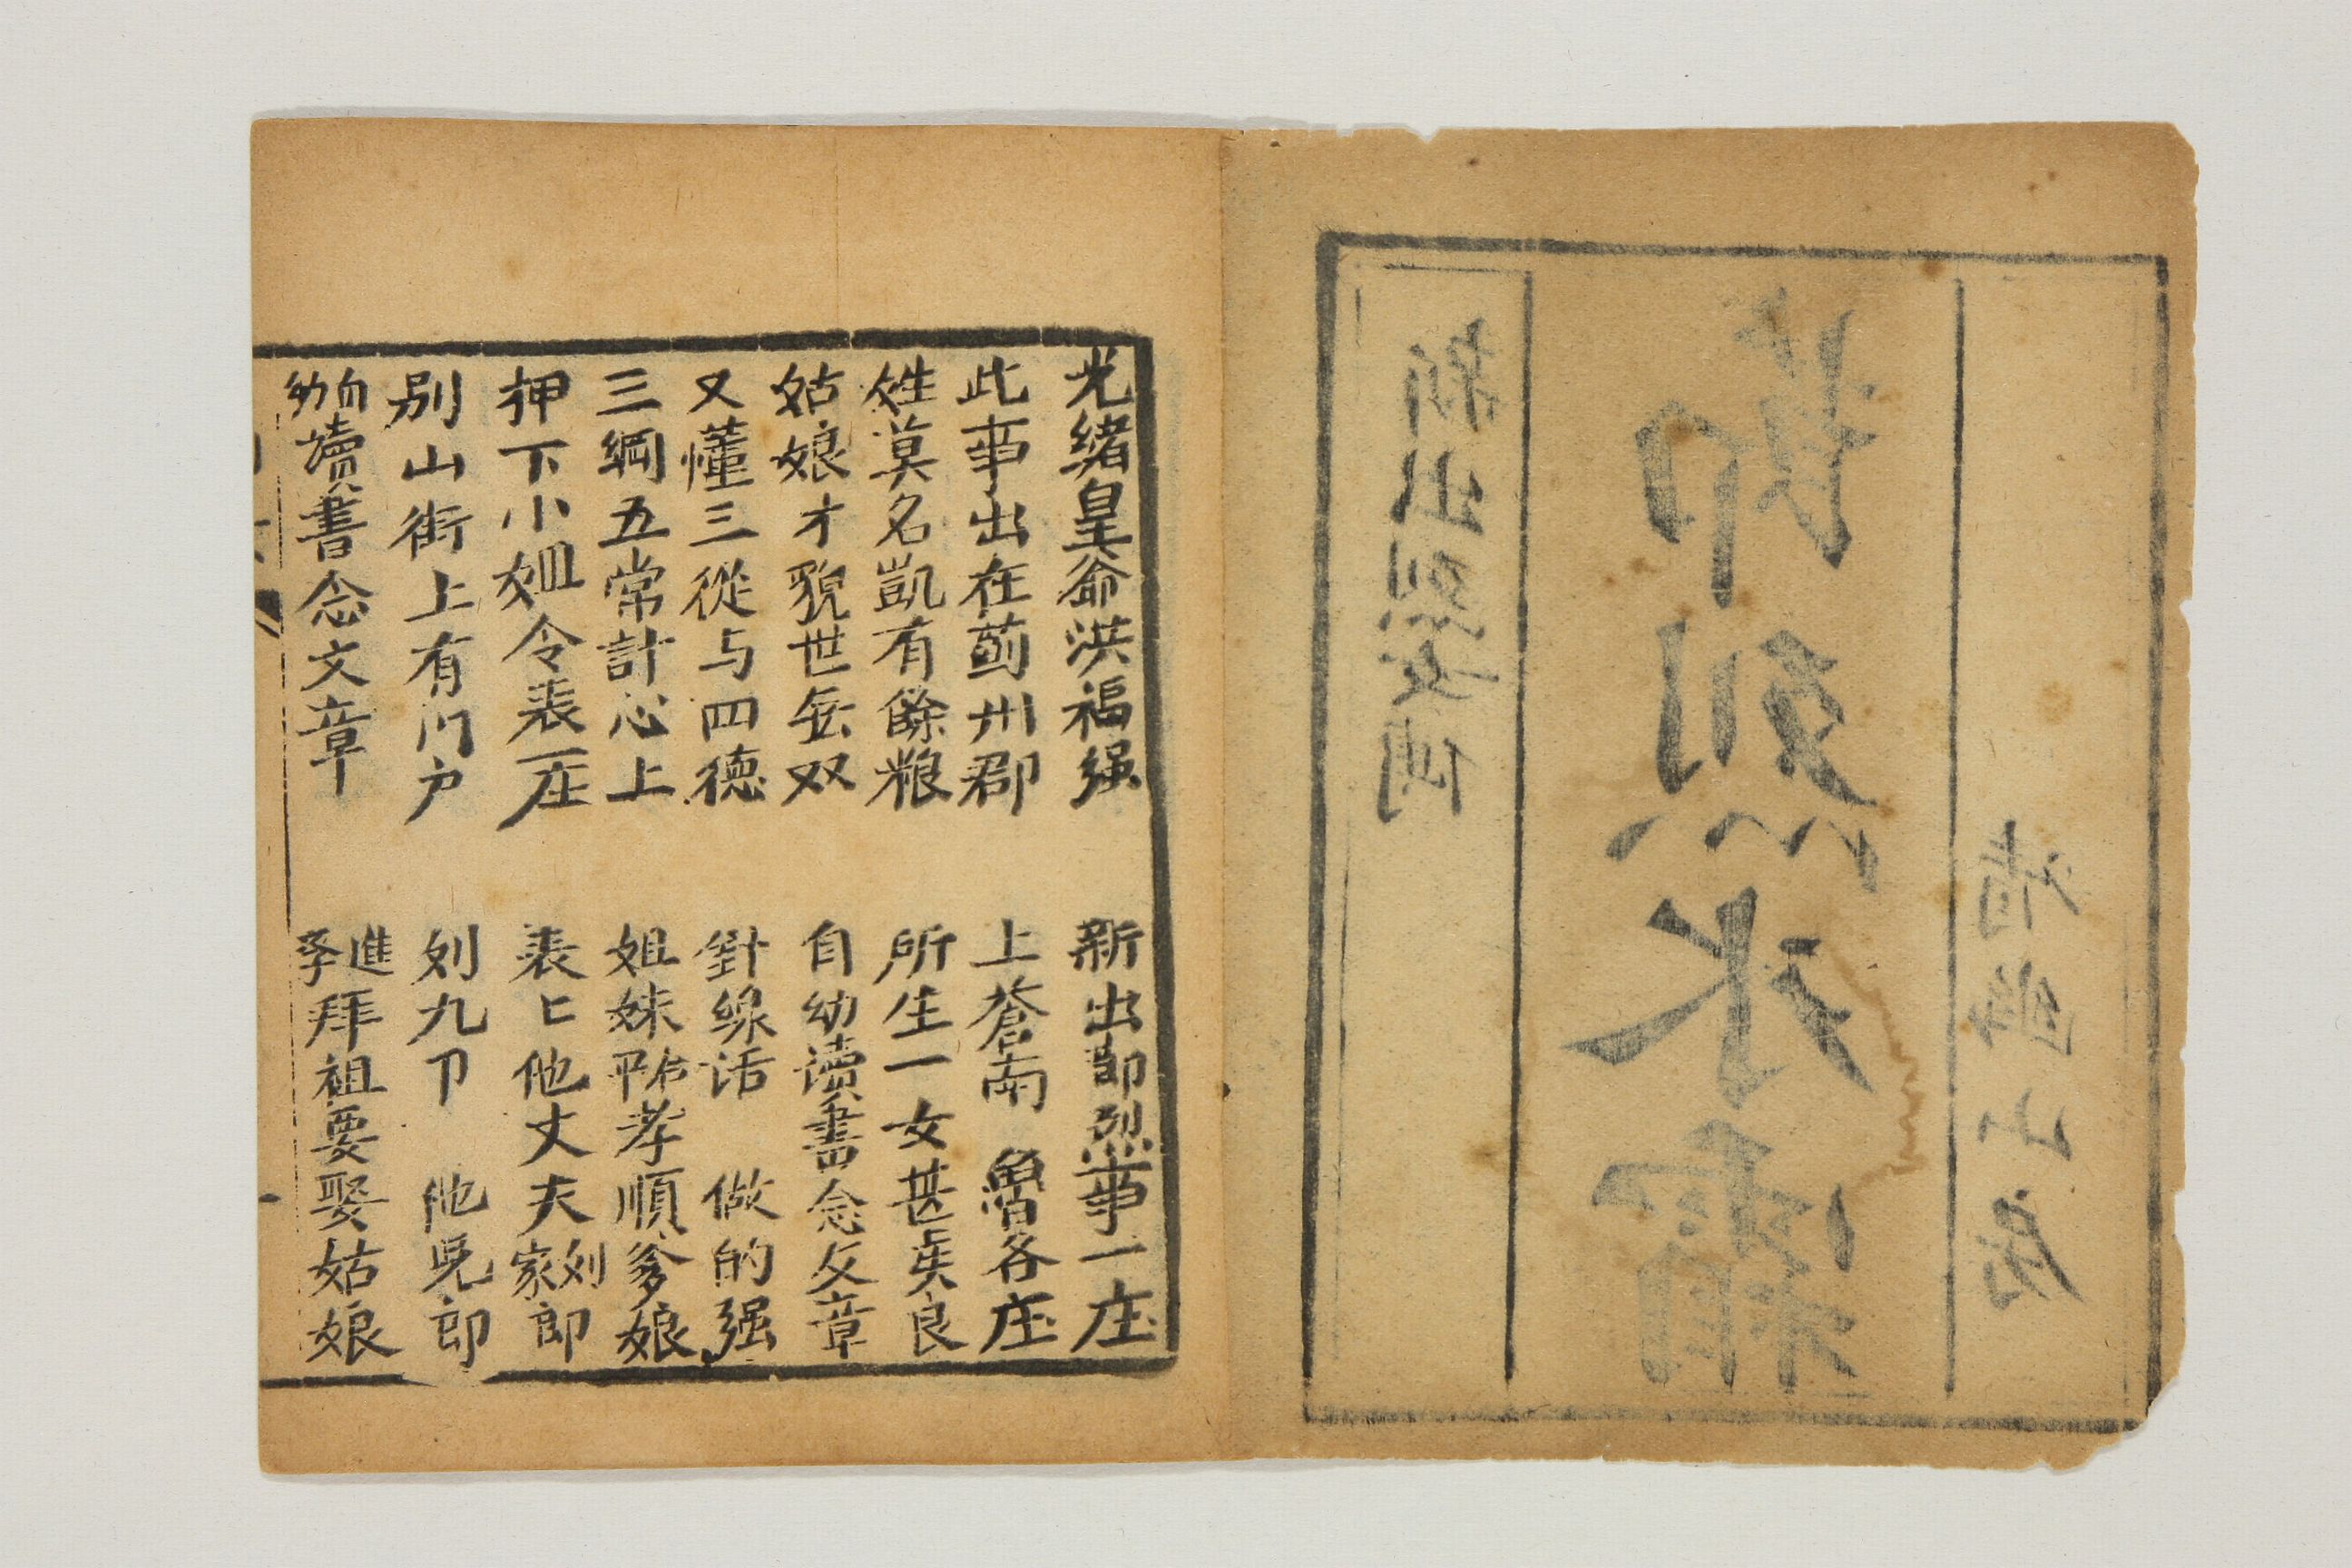 新出烈女傳
節烈冰霜
光緒皇爺洪福强
新出節烈事一庄
此事出在薊州郡
上蒼南 魯各庄
姓莫名凱有餘粮
所生一女甚美良
姑娘才貌世無双
自幼读書念文章
又懂三從与四德
針線活 做的强
三綱五常計心上
姐妹和睦孝順爹娘
押下小姐令表一庄
表匕他丈夫刘家郎
别山街上有门户
刘九卩 他児郎
自幼讀書念文章
進孝拜祖要娶姑娘